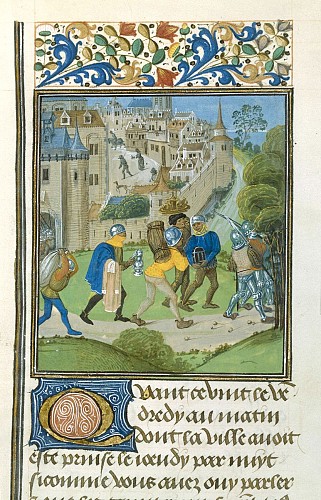 Quant ce vint le ve
dredy au matin
dont la ville avoit
este prise le jeudy par nuyt
sicomme vous avez ouy parler